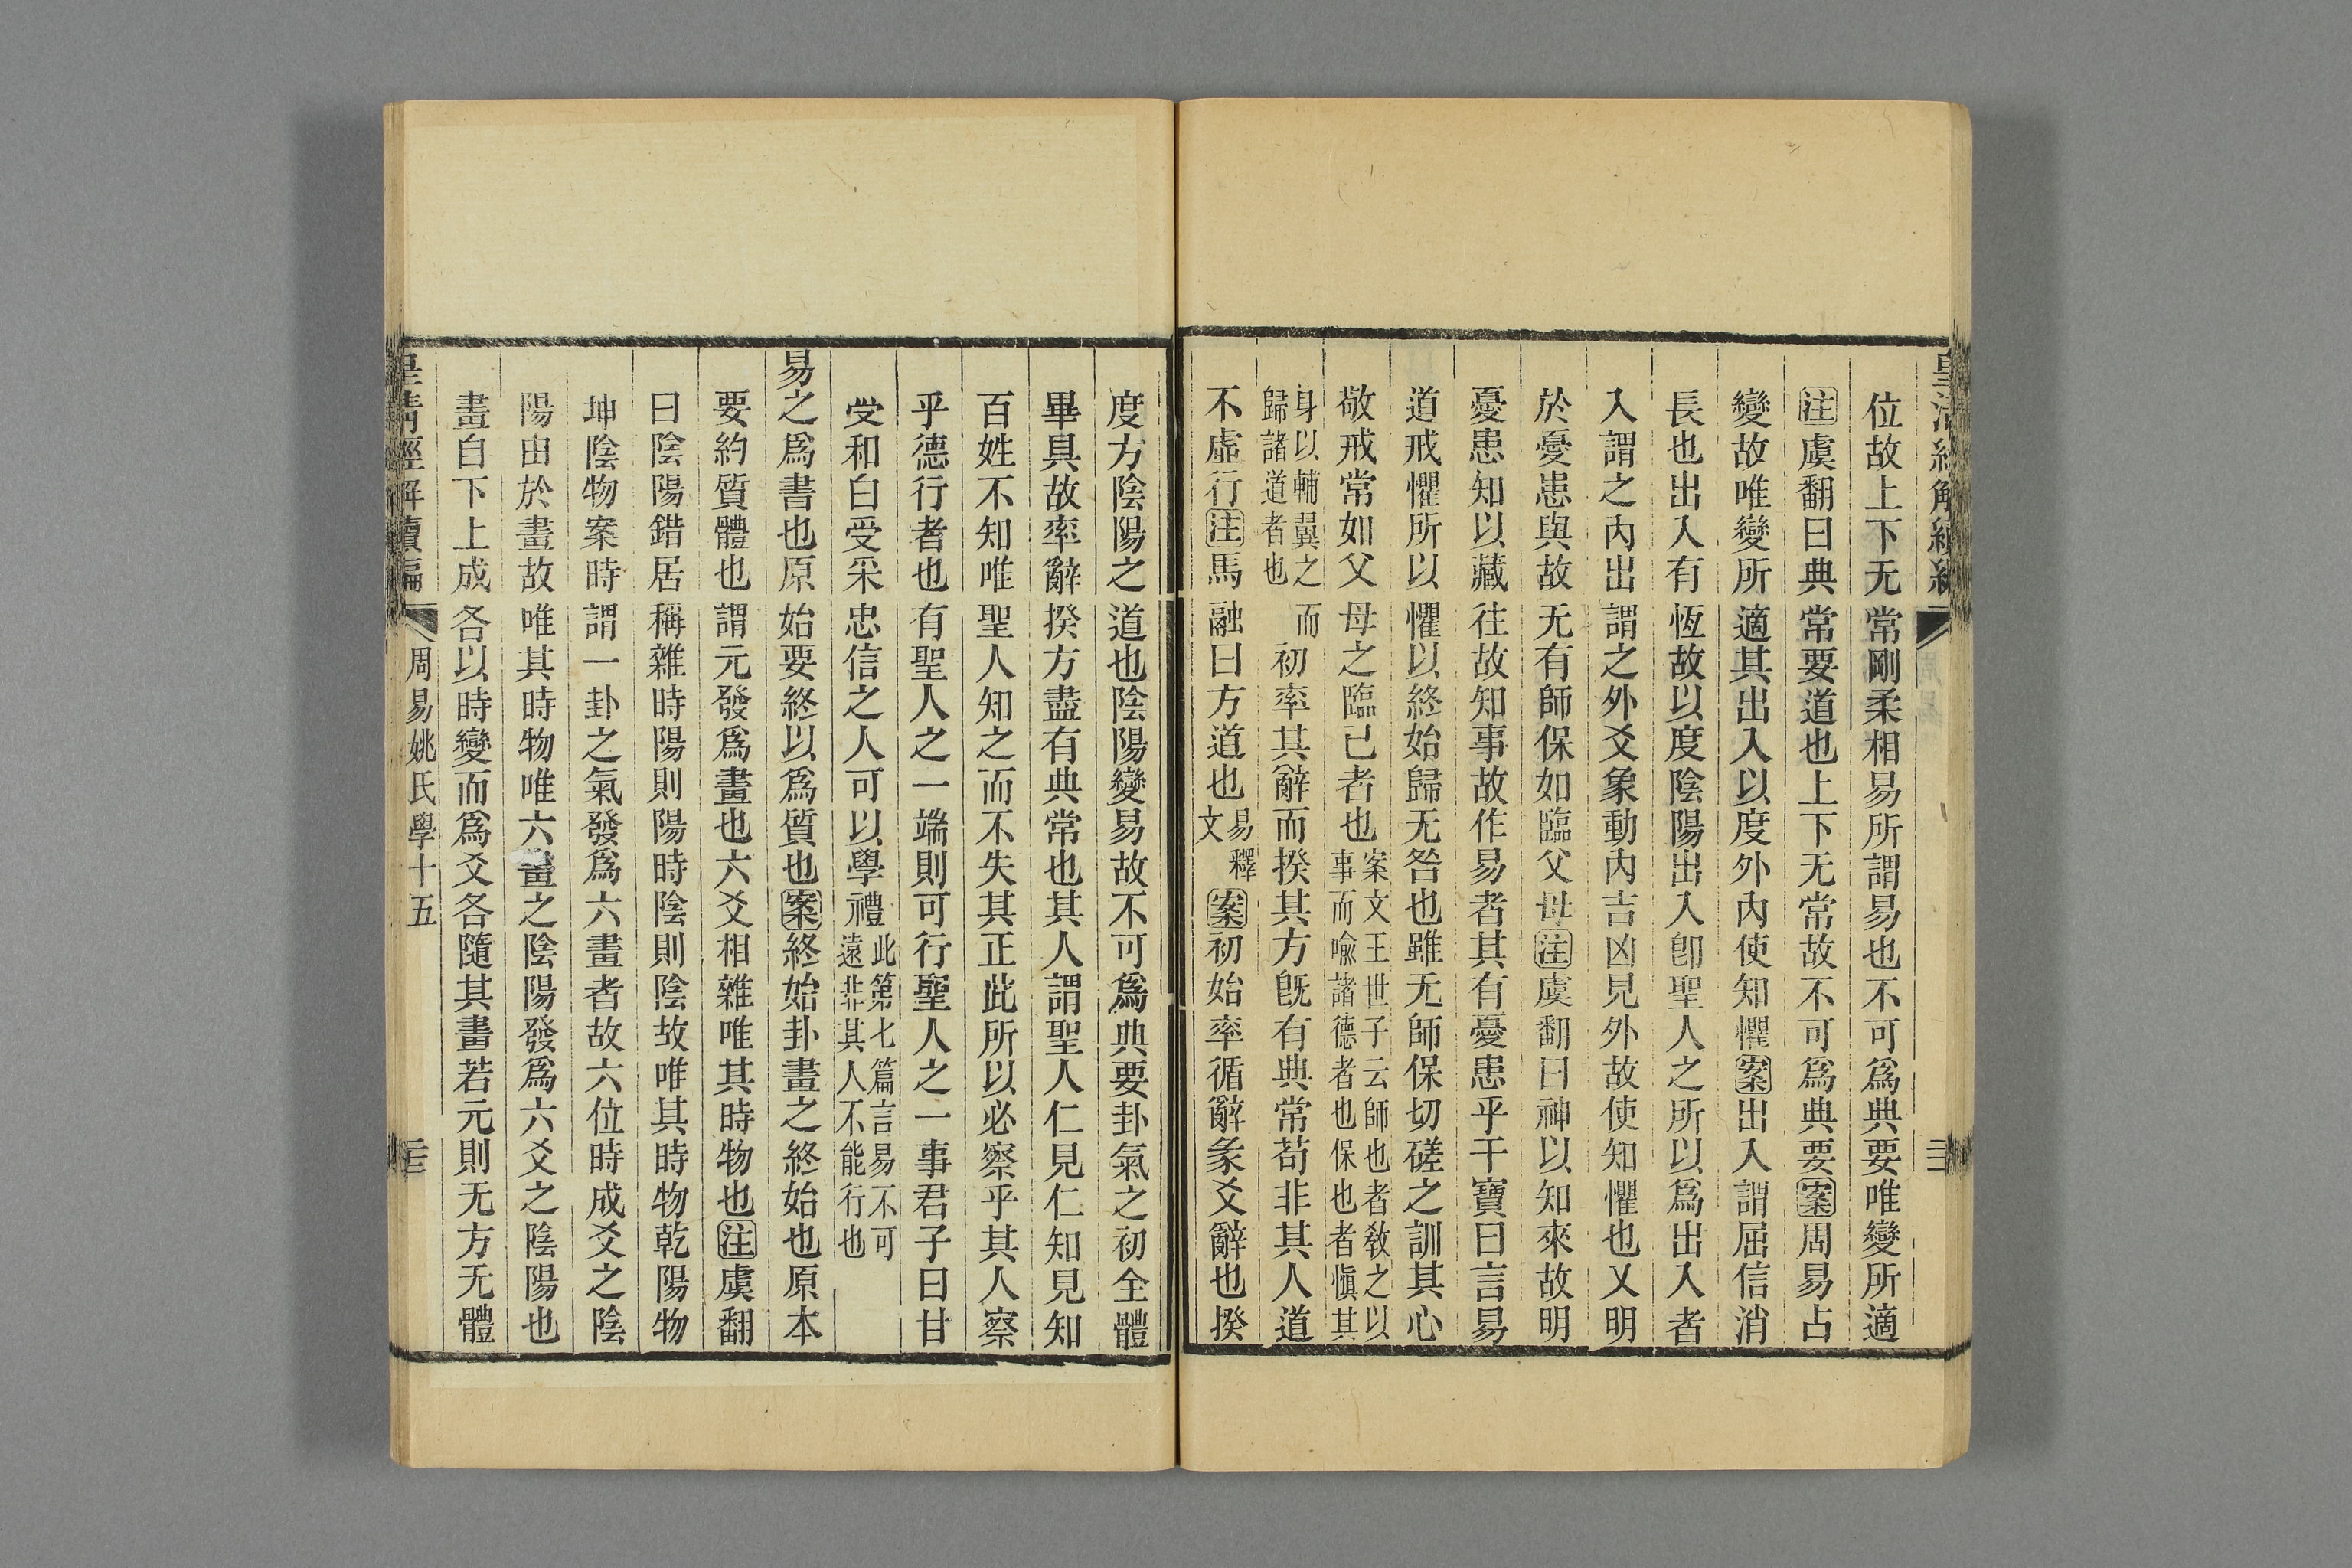 位故上下无常剛柔相易所謂易也不可爲典要唯變所適
注虞翻曰典常要道也上下无常故不可爲典要案周易占
變故唯變所適其出入以度外內使知懼案出入謂屈信消
長也出入有恆故以度陰陽出入卽聖人之所以爲出入者
入謂之內出謂之外爻象動內吉凶見外故使知懼也又明
於憂患與故无有師保如臨父母注虞翻曰神以知來故明
憂患知以藏往故知事故作易者其有憂患乎干寶曰言易
道戒懼所以懼以終始歸无咎也雖无師保切磋之訓其心
敬戒常如父母之臨己者也案文王世子云師也者敎之以事而喩諸德者也保也者愼其
身以輔翼之而歸諸道者也初率其辭而揆其方旣有典常苟非其人道
不虛行注馬融曰方道也易釋文案初始率循辭彖爻辭也揆
度方陰陽之道也陰陽變易故不可爲典要卦氣之初全體
畢具故率辭揆方盡有典常也其人謂聖人仁見仁知見知
百姓不知唯聖人知之而不失其正此所以必察乎其人察
乎德行者也有聖人之一端則可行聖人之一事君子曰甘
受和白受采忠信之人可以學禮此第七篇言易不可遠非其人不能行也
易之爲書也原始要終以爲質也案終始卦畫之終始也原本
要約質體也謂元發爲畫也六爻相雜唯其時物也注虞翻
曰陰陽錯居稱雜時陽則陽時陰則陰故唯其時物乾陽物
坤陰物案時謂一卦之氣發爲六畫者故六位時成爻之陰
陽由於畫故唯其時物唯六畫之陰陽發爲六爻之陰陽也
畫自下上成各以時變而爲爻各隨其畫若元則无方无體
皇清經解續編
周易姚氏學十五